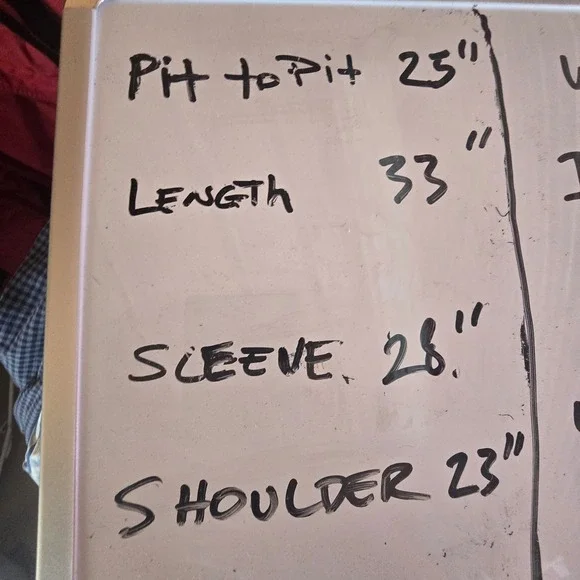 Pit to Pit 25"
LENGTh 33"
SLEEVE. 28."
SHOULDER 23"